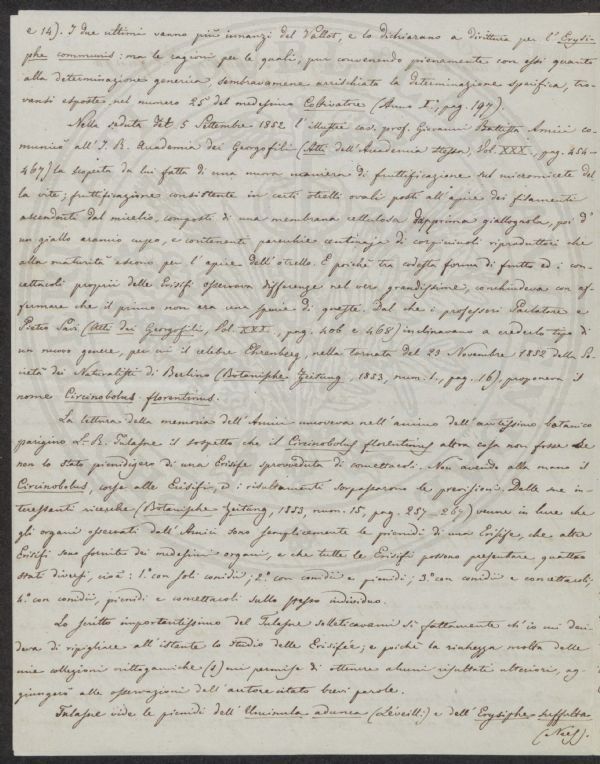 e 14). I due ultimi vanno più innanzi del Vallot, e lo dichiarano a dirittura per l'Erysi-
phe communis: ma le ragioni per le quali, pur convenendo pienamente con essi quanto
alla determinazione generica, sembravamene arrischiata la determinazione specifica, tro-
vansi esposte nel numero 25 del medesimo Coltivatore (Anno I, pag. 197).
Nella seduta del 5 Settembre 1852 l'illustre cav. prof. Giovanni Battista Amici co-
municò all'I. R. Accademia dei Georgofili (Atti dell'Accademia stessa, Vol. XXX, pag. 454-
467) la scoperta da lui fatta di una nuova maniera di fruttificazione sul micromicete del-
la vite; fruttificazione consistente in certi otrelli ovali posti all'apice dei filamenti
ascendenti dal micelio, composti di una membrana cellulosa dapprima giallognola, poi d'
un giallo arancio cupo, e contenenti parecchie centinaja di corpicciuoli riproduttori che
alla maturità escono per l'apice dell'otrello. E poichè tra codesta forma di frutto ed i con-
cettacoli proprii delle Erisifi osservava differenze nel vero grandissime, conchiudeva con af-
fermare che il primo non era una specie di queste. Dal che i professori Parlatore e
Pietro Savi (Atti dei Georgofili, Vol. XXX, pag. 406 e 468) inclinavano a crederlo tipo di
un nuovo genere, per cui il celebre Ehrenberg, nella tornata del 23 Novembre 1852 della So-
cietà dei Naturalisti di Berlino (Botanische Zeitung, 1853, num. 1., pag. 16), proponeva il
nome Circinobolus florentinus.
La lettura della memoria dell'Amici muoveva nell'animo dell'acutissimo botanico
parigino L. R. Tulasne il sospetto che il Circinobolus florentinus altra cosa non fosse se
non lo stato picnidigero di una Erisife sprovveduta di concettacoli. Non avendo alla mano il
Circinobolus, corse alle Erisifi, e i risultamenti sorpassarono le previsioni. Dalle sue in-
teressanti ricerche (Botanische Zeitung, 1853, num. 15, pag. 257-267) venne in luce che
gli organi osservati dall'Amici sono semplicemente le picnidi di una Erisife, che altre
Erisifi sono fornite dei medesimi organi, e che tutte le Erisifi possono presentare quattro
stati diversi, cioè: 1.° con soli conidii; 2.° con conidii e picnidi; 3.° con conidii e concettacoli;
4.° con conidii, picnidi e concettacoli sullo stesso individuo.
Lo scritto importantissimo del Tulasne solleticavami sì fattamente ch'io mi deci-
deva di ripigliare all'istante lo studio delle Erisifee; e poichè la ricchezza molta delle
mie collezioni crittogamiche (1) mi permise di ottenere alcuni risultati ulteriori, ag-
giungerò alle osservazioni dell'autore citato brevi parole.
Tulasne vide le picnidi dell'Uncinula adunca (Léveill.) e dell'Erysiphe suffulta
(Nees).